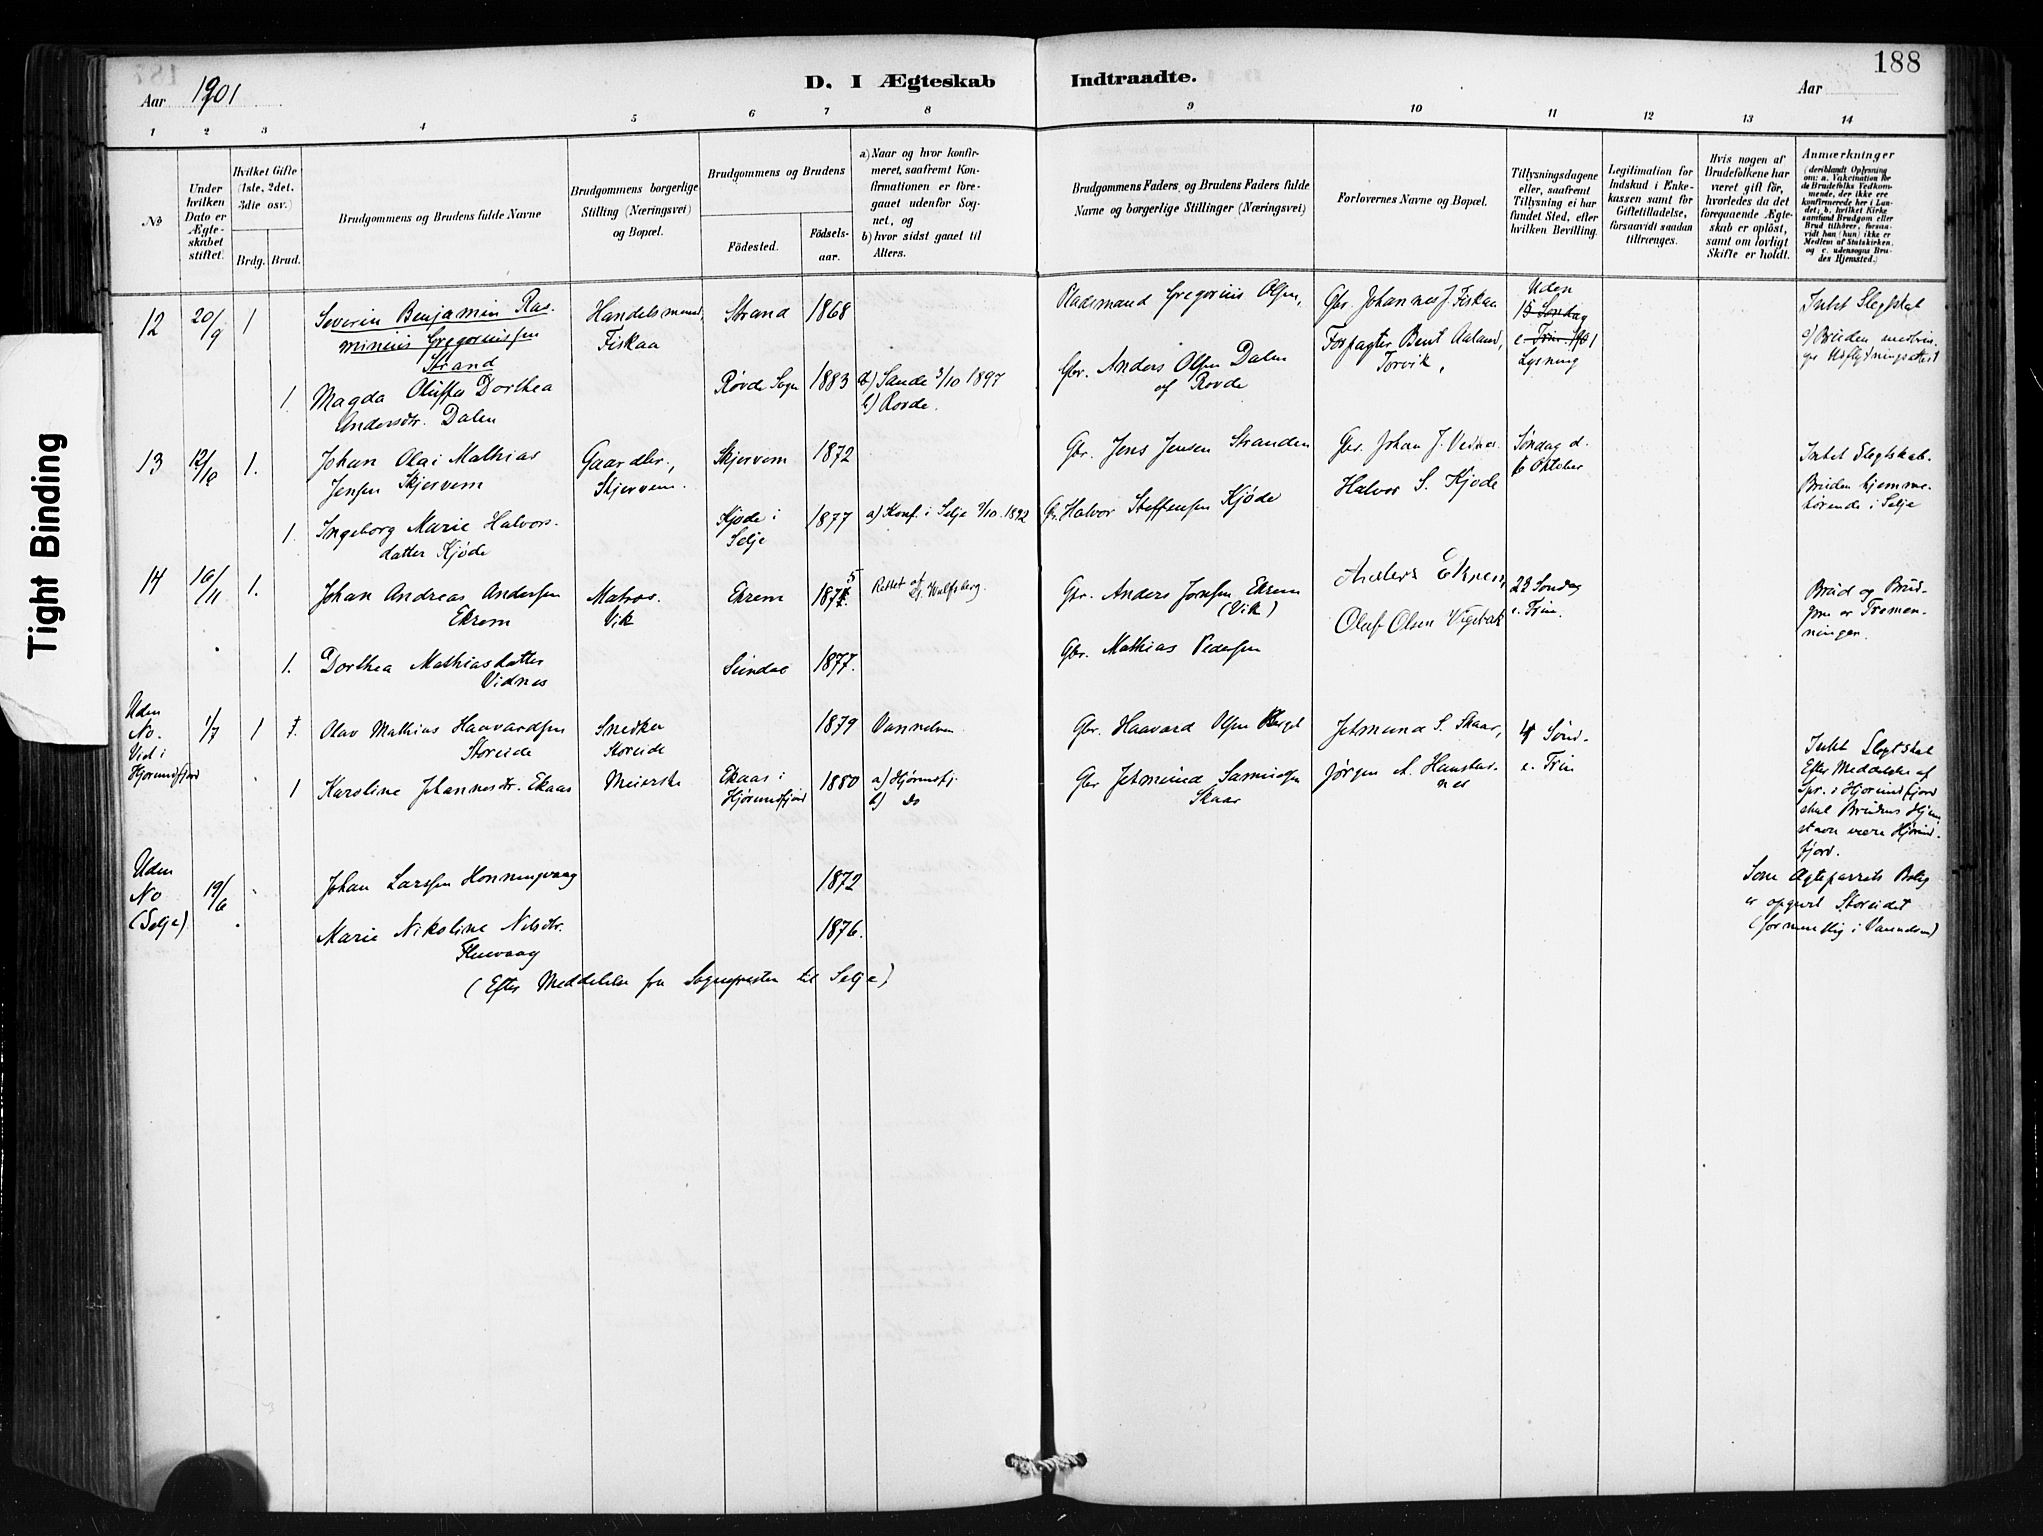 188
Aar 1901
D. I Ægteskab Indtraadte.
Aar
1 2 3 4 5 6 7 8 9 10 11 12 13 14
No
Under hvilken Dato er Ægteskabet stiftet.
Hvilket Gifte (1ste, 2det, 3die osv.)
Brdg. Brud.
Brudgommens og Brudens fulde Navne
Brudgommens borgerlige Stilling (Næringsvei) og Bopæl.
Brudgommens og Brudens
Födested.
Födselsaar.
a) Naar og hvor konfirmeret, saafremt Konfirmationen er foregaaet udenfor Sognet, og
b) hvor sidst gaaet til Alters.
Brudgommens Faders og Brudens Faders fulde Navne og borgerlige Stillinger (Næringsvei)
Forlovernes Navne og Bopæl.
Tillysningsdagene eller, saafremt Tillysning ei har fundet Sted, efter hvilken Bevilling.
Legitimation for Indskud i Enkekassen samt for Giftetilladelse, forsaavidt saadan tiltrænges.
Hvis nogen af Brudefolkene har været gift før, hvorledes da det foregaaende Ægteskab er oplöst, samt om lovligt Skifte er holdt.
Anmærkninger (deriblandt Oplysning om: a. Vakcination for de Brudefolks Vedkommende, der ikke ere konfirmerede her i Landet; b. hvilket Kirkesamfund Brudgom eller Brud tilhører, forsaavidt han (hun) ikke er Medlem af Statskirken, og c. udensogns Brudes Hjemsted.)
12 20/9 1
Severin Benjamin Rasminius Gregoriussen Strand
Handelsmand, Fiskaa
Strand 1868
Pladsmand Gregorius Olsen,
Gbr. Johannes J. Fiskaa
Forpagter Bent Aaland, Torvik,
Uden
15 Søndag
e Trin 1901
Lysning
Intet Slegtskab
c) Bruden medbringer Udflytningsattest
1. Magda Oluffa Dorthea Andersdtr. Dalen
Røvde Sogn 1883
a) Sande 3/10 1897
b) Rovde.
Gbr. Anders Olsen Dalen
af Rovde
13 12/10 1.
Johan Olai Mathias Jensen Skjervem
Gaardbr., Skjervem.
Skjervem 1872
Gbr. Jens Jensen Stranden
Gbr. Johan J. Vednes
Halvor S. Kjøde
Søndag d.
6 Oktober
Intet Slegtskab.
Bruden hjemmehørende i Selje
1. Ingeborg Marie Halvorsdatter Kjøde
Kjøde i Selje 1877
a) Konf. i Selje 2/10 1892
Gbr. Halvor Steffensen Kjøde
14 16/11 1.
Johan Andreas Andersen Ekrem
Matros. Vik
Ekrem 1875
Rettet af Wulfsberg.
Gbr. Anders Josefsen Ekrem
(Vik)
Anders Ekrem
Oluf Olsen Vigebak
23 Søndag
e. Trin.
Brud og Brudgom er Tremenninger.
1. Dorthea Mathiasdatter Vidnes
Sundal 1877.
Gbr. Mathias Pedersen
Uden No. Viet i Hjørundfjord
1/7 1
Olav Mathias Haavardsen Storeide
Snedker Storeide
1879 Vannelven.
Gbr. Haavard Olsen Berget
Jetmund S. Skaar,
Jørgen A.
4 Sønd.
e. Trin
Intet Slegtskab
Efter Meddelelse af Spr. i Hjørundfjord skal Brudens Hjemstavn være Hjørundfjord.
1 Karoline Johannesdtr. Ekaas
Meierske
Ekaas i Hjørundfjord 1880
a) Hjørundfj.
b) Do
Gbr Jetmund Samuelsen Skaar
Uden No (Selje)
19/6
Johan Larssen Honningvaag 1872
Marie Nikoline Nilsdtr. Fluevaag 1876.
(Efter Meddelelse fra Sognepresten til Selje)
Som Ægteparrets Bolig
er opgivet Storeidet
(formentlig i Vannelven)
Tight Binding